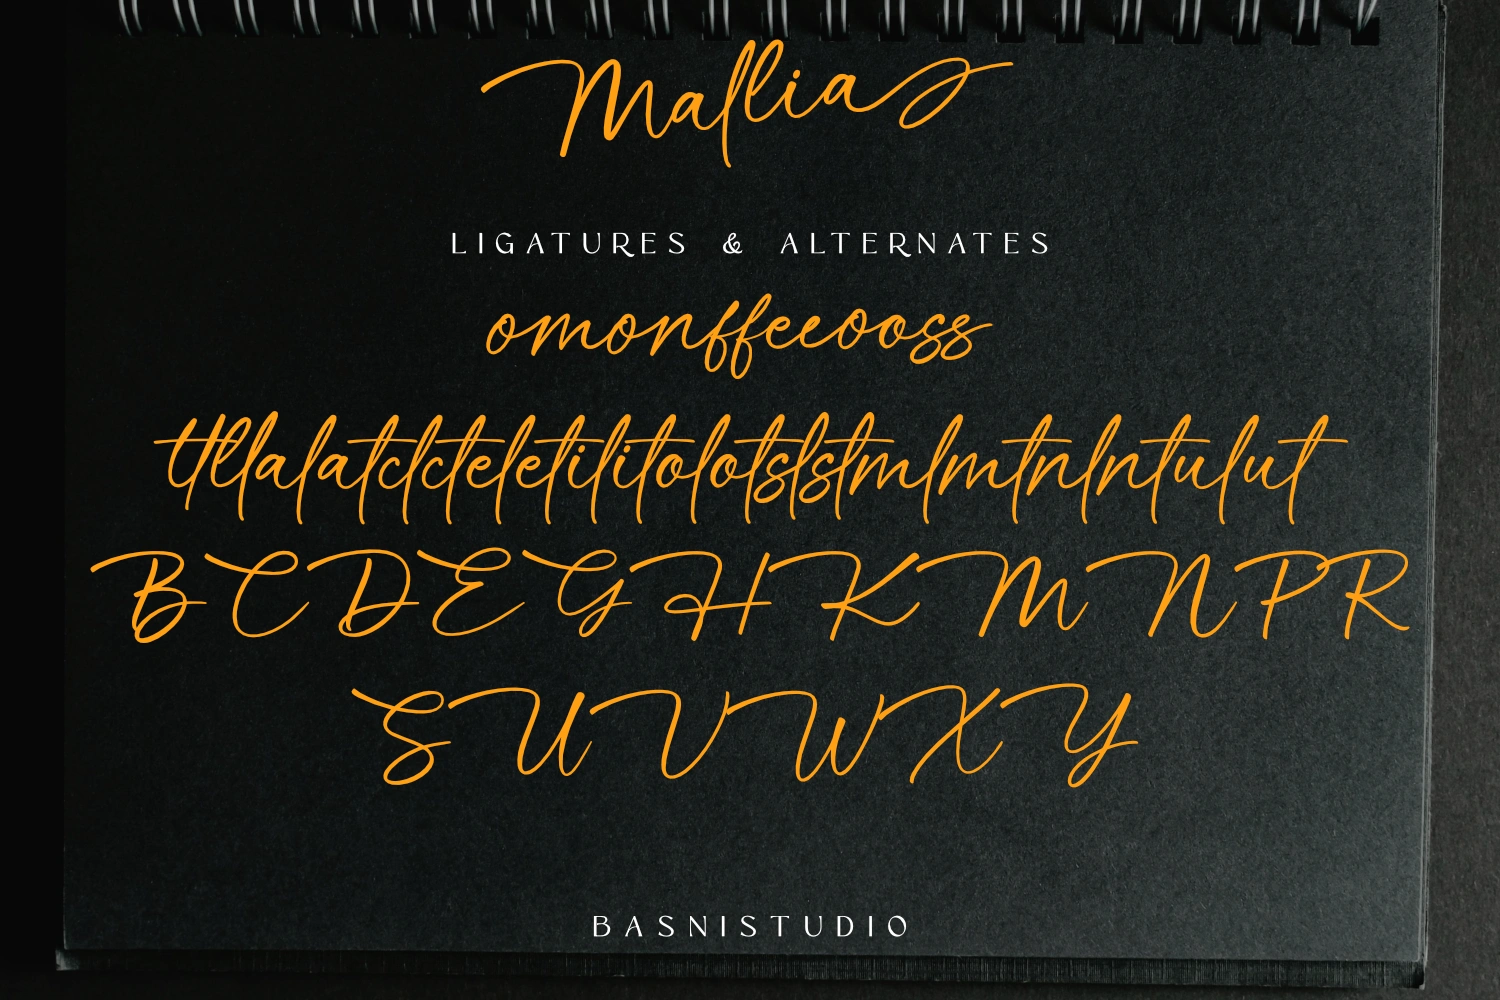 Mallia
LIGATURES & ALTERNATES
omonffeeooss
ttllalatclcteletilitolotslstmlmtnlntulut
BCDEGHKMNPR
SUVWXY
BASNISTUDIO